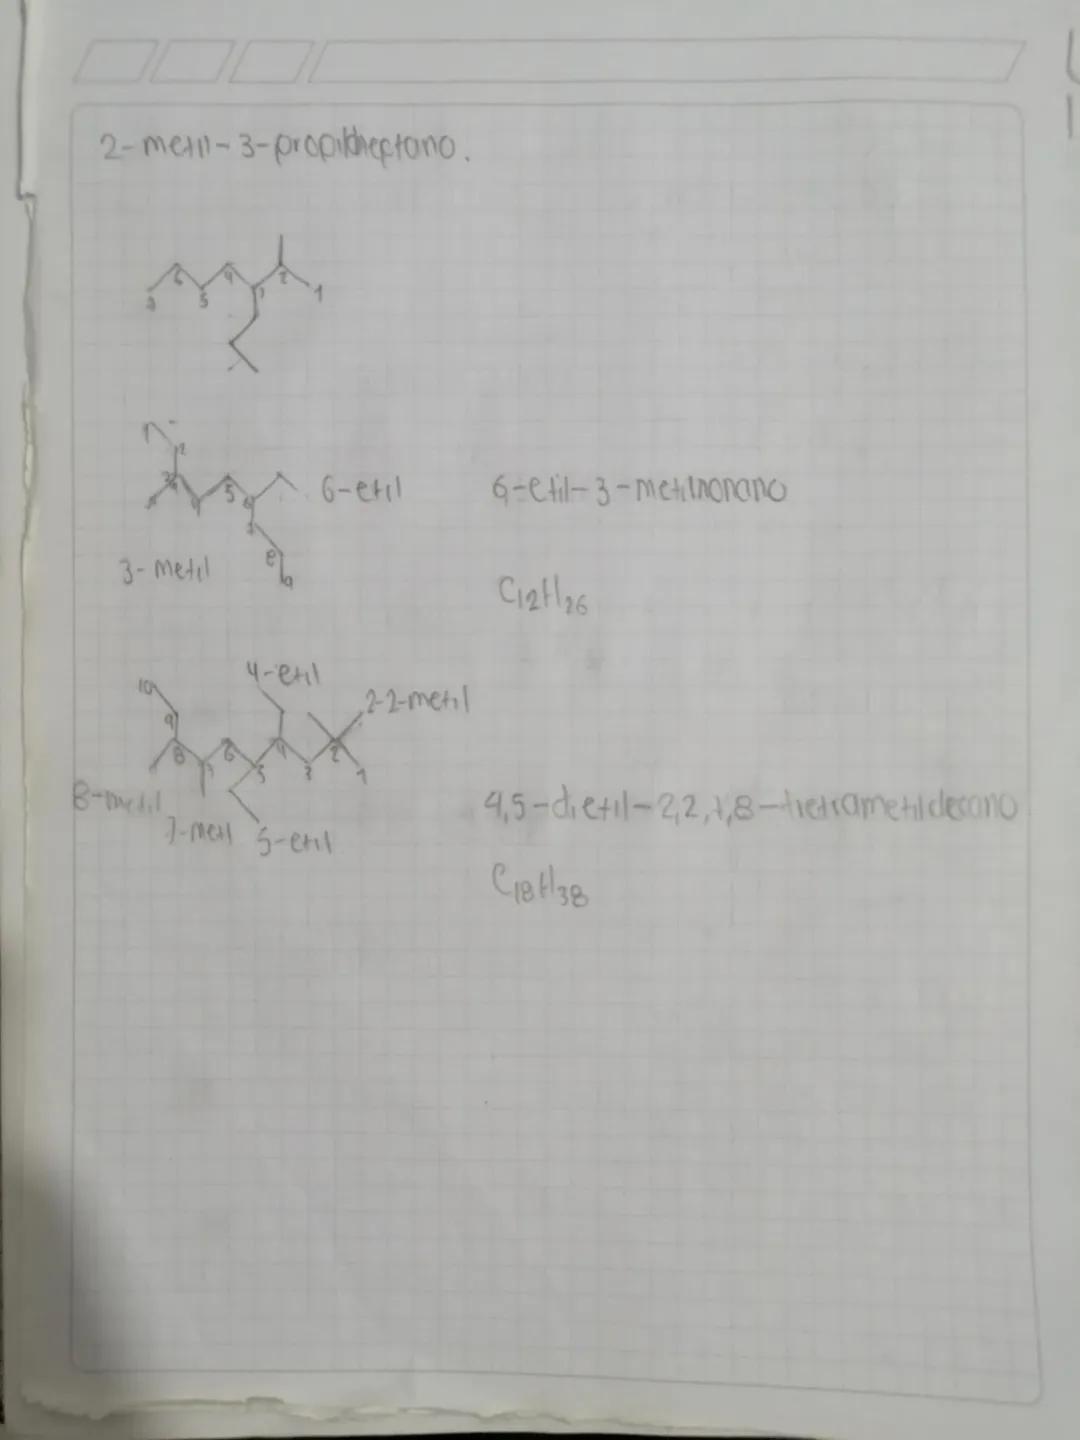 2-metil-3-propilheptano.
7 6 5 4 3 2 1
1 2
3 4 5 6 6-etil 6-etil-3-metilnonano
7
3-metil 8 9
C12H26
4-etil
10 2-2-metil
9
8 7 6 5 4 3 2 1
8-metil 4,5-dietil-2,2,7,8-tretrametildecano
7-metl 5-etil
C18H38